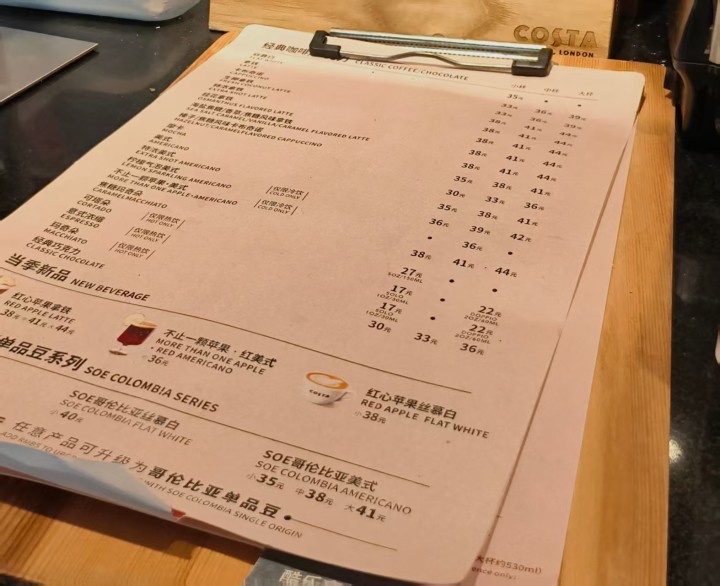 COSTA
LONDON
经典咖啡
CLASSIC COFFEE/CHOCOLATE
小杯 中杯 大杯
拿铁
LATTE
卡布奇诺
CAPPUCCINO
生椰拿铁
FRESH COCONUT LATTE
特浓拿铁
EXTRA SHOT LATTE
桂花拿铁
OSMANTHUS FLAVORED LATTE
海盐焦糖/香草/焦糖风味拿铁
SEA SALT CARAMEL/VANILLA/CARAMEL FLAVORED LATTE
榛子/焦糖风味卡布奇诺
HAZELNUT/CARAMELFLAVORED CAPPUCCINO
摩卡
MOCHA
美式
AMERICANO
特浓美式
EXTRA SHOT AMERICANO
柠檬气泡美式
LEMON SPARKLING AMERICANO
不止一颗苹果·美式
MORE THAN ONE APPLE·AMERICANO
仅限冷饮
COLD ONLY
仅限冷饮
COLD ONLY
焦糖玛奇朵
CARAMELMACCHIATO
可塔朵
CORTADO
仅限热饮
HOT ONLY
意式浓缩
ESPRESSO
仅限热饮
HOT ONLY
玛奇朵
MACCHIATO
仅限热饮
HOT ONLY
经典巧克力
CLASSIC CHOCOLATE
35元 • •
33元 36元 39元
38元 41元 44元
38元 41元 44元
38元 41元 44元
35元 38元 41元
30元 33元 36元
35元 38元 41元
36元 39元 42元
• 36元 •
38元 41元 44元
27元
5OZ/150ML
17元
SOLO
1OZ/30ML
22元
DOPPIO
2OZ/60ML
17元
SOLO
1OZ/30ML
22元
DOPPIO
2OZ/60ML
30元 33元 36元
当季新品 NEW BEVERAGE
红心苹果拿铁
RED APPLE LATTE
38元 中41元 大44元
不止一颗苹果·红美式
MORE THAN ONE APPLE
·RED AMERICANO
中36元
红心苹果丝慕白
RED APPLE FLAT WHITE
小38元
单品豆系列 SOE COLOMBIA SERIES
SOE哥伦比亚丝慕白
SOE COLOMBIA FLAT WHITE
小40元
SOE哥伦比亚美式
SOE COLOMBIA AMERICANO
小35元 中38元 大41元
任意产品可升级为哥伦比亚单品豆
WITH SOE COLOMBIA SINGLE ORIGIN
大杯约530ml)